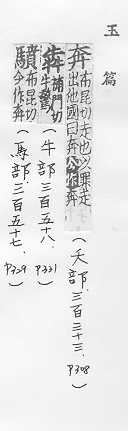 玉篇
奔 布昆切走也又
出他國曰奔
(夭部.三百三十三.P308)
犇 補門切
牛驚
(牛部.三百五十八.P331)
布昆切
今作奔
(馬部.三百五十七.P329)